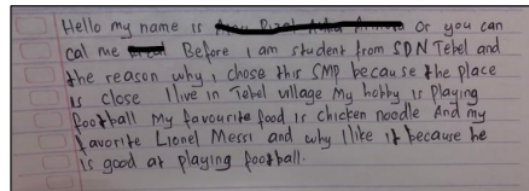 Hello my name is or you can
cal me Before i am student from SDN Tebel and
the reason why i chose this SMP because the place
is close I live in Tebel village My hobby is playing
football My favourite food is chicken noodle And my
favorite Lionel Messi and why I like it because he
is good at playing football.